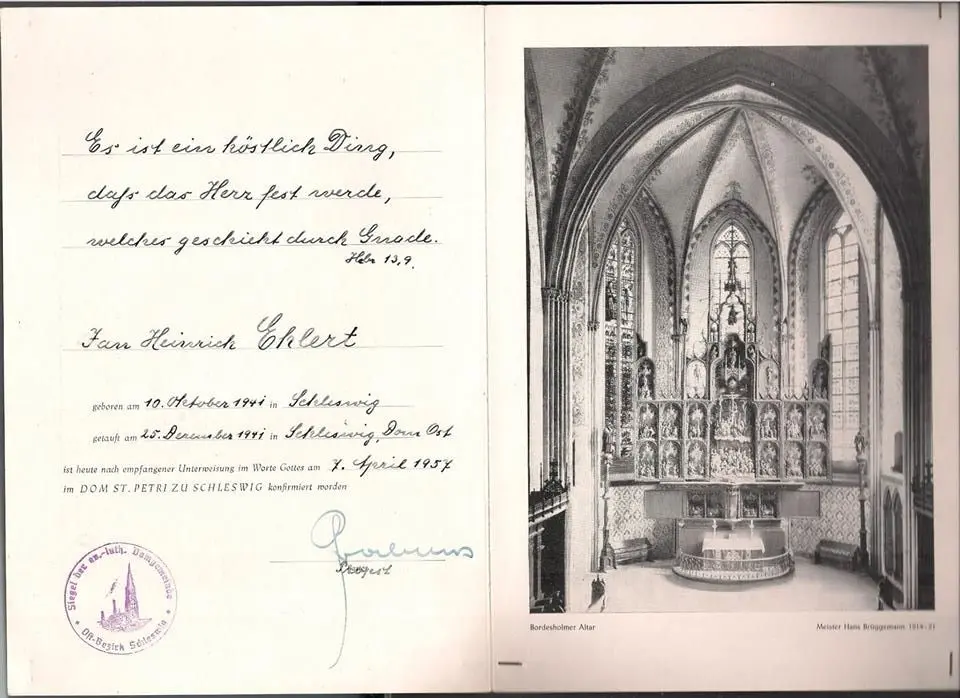 Es ist ein köstlich Ding,
daß das Herz fest werde,
welches geschieht durch Gnade.
Hebr 13,9.
Jan Heinrich Ehlert
geboren am 10. Oktober 1941 in Schleswig
getauft am 25. Dezember 1941 in Schleswig, Dom Ost
ist heute nach empfangener Unterweisung im Worte Gottes am 7. April 1957
im DOM ST. PETRI ZU SCHLESWIG konfirmiert worden
Propst
Siegel der ev.-luth. Domgemeinde
Ost-Bezirk Schleswig
Bordesholmer Altar
Meister Hans Brüggemann 1514-21